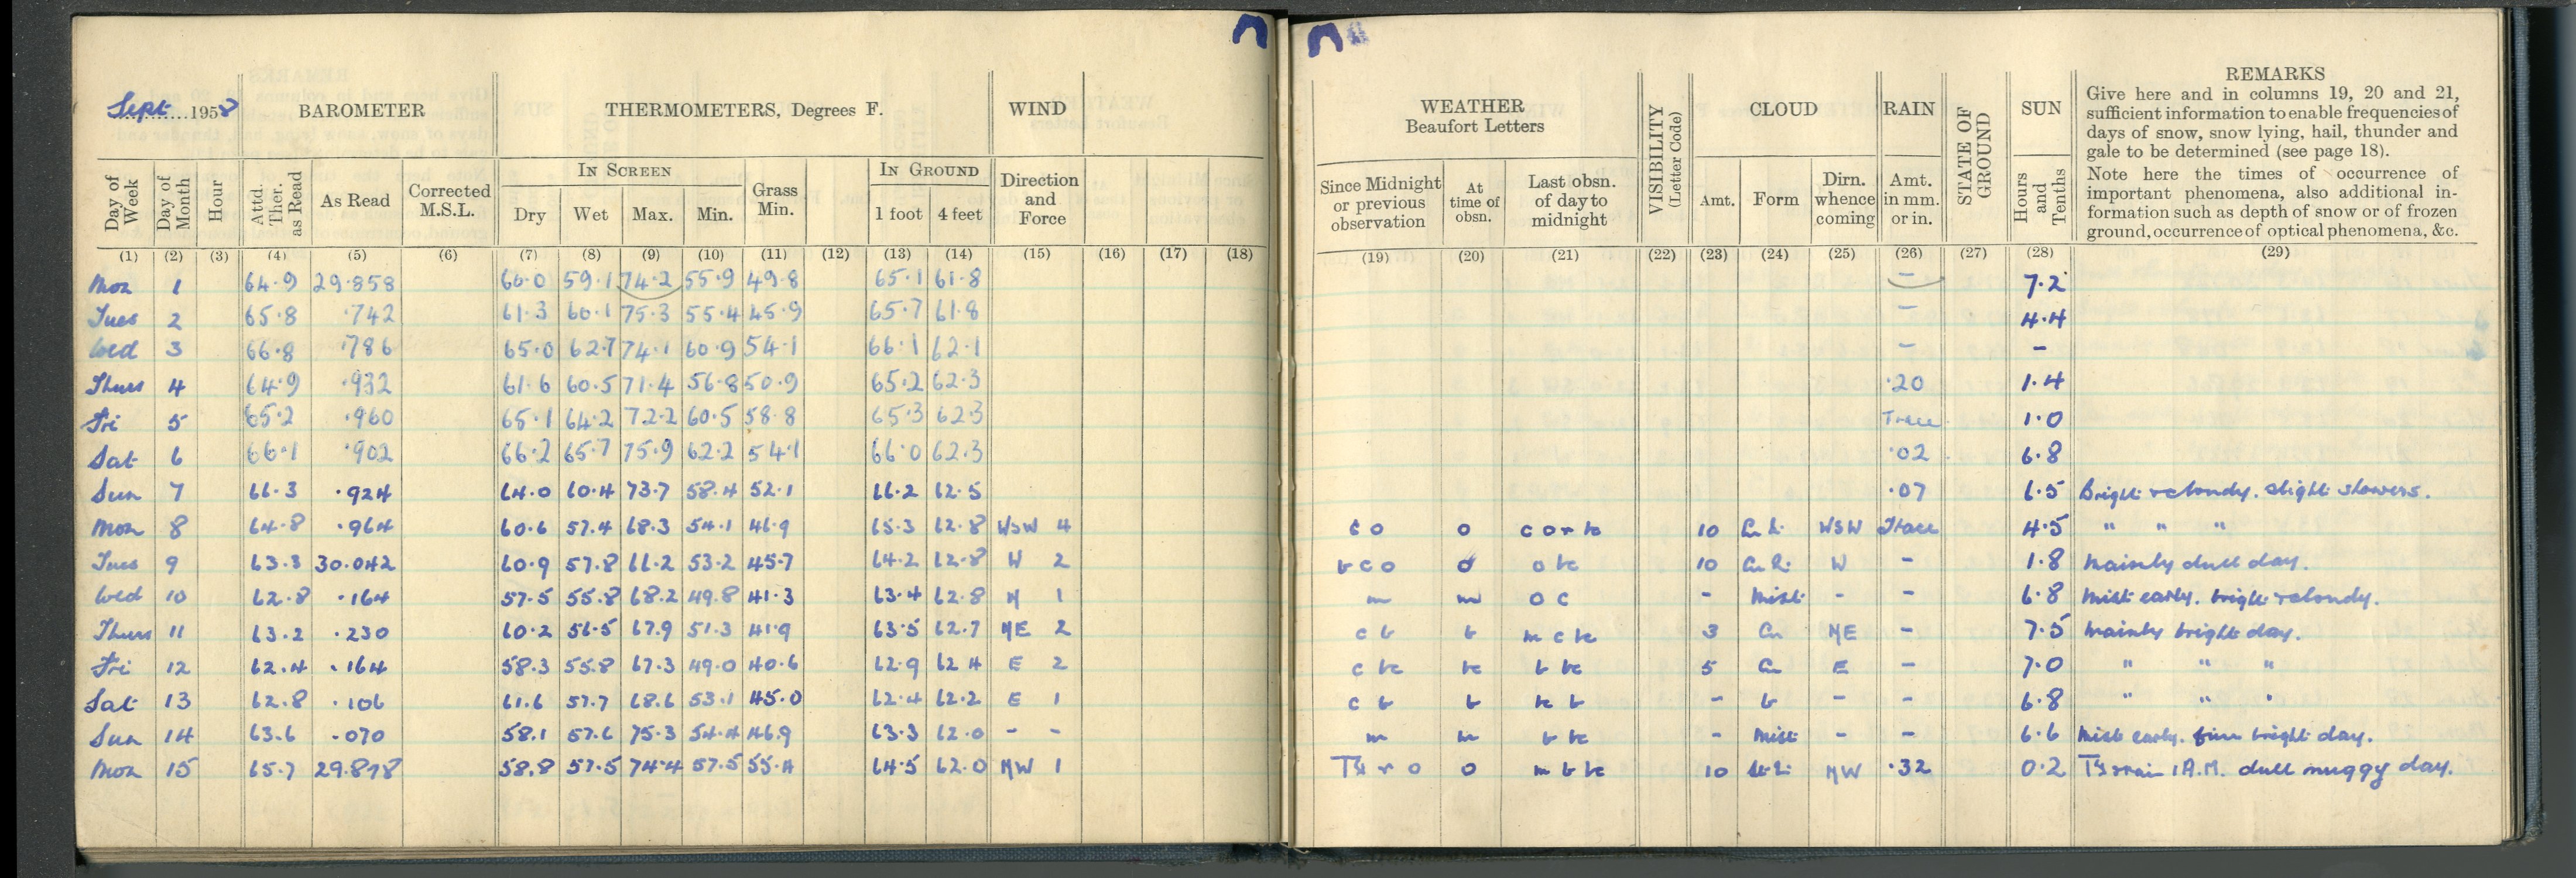 Sept. 1958 BAROMETER THERMOMETERS, Degrees F. WIND
Day of Week Day of Month Hour Attd. Ther. as Read As Read Corrected M.S.L. IN SCREEN Dry Wet Max. Min. Grass Min. IN GROUND 1 foot 4 feet Direction and Force
(1) (2) (3) (4) (5) (6) (7) (8) (9) (10) (11) (12) (13) (14) (15) (16) (17) (18)
WEATHER Beaufort Letters VISIBILITY (Letter Code) CLOUD RAIN STATE OF GROUND SUN REMARKS
Give here and in columns 19, 20 and 21,
sufficient information to enable frequencies of
days of snow, snow lying, hail, thunder and
gale to be determined (see page 18).
Note here the times of occurrence of
important phenomena, also additional in-
formation such as depth of snow or of frozen
ground, occurrence of optical phenomena, &c.
Since Midnight or previous observation At time of obsn. Last obsn. of day to midnight Amt. Form Dirn. whence coming Amt. in mm. or in. Hours and Tenths
(19) (20) (21) (22) (23) (24) (25) (26) (27) (28) (29)
Mon 1 64.9 29.858 60.0 59.1 74.2 55.9 49.8 65.1 61.8 - 7.2
Tues 2 65.8 .742 61.3 60.1 75.3 55.4 45.9 65.7 61.8 - 4.4
Wed 3 66.8 .786 65.0 62.7 74.1 60.9 54.1 66.1 62.1 - -
Thurs 4 64.9 .932 61.6 60.5 71.4 56.8 50.9 65.2 62.3 .20 1.4
Fri 5 65.2 .960 65.1 64.2 72.2 60.5 58.8 65.3 62.3 Trace 1.0
Sat 6 66.1 .902 66.2 65.7 75.9 62.2 54.1 66.0 62.3 .02 6.8
Sun 7 66.3 .924 64.0 60.4 73.7 58.4 52.1 66.2 62.5 .07 6.5 Bright & cloudy. slight showers.
Mon 8 64.8 .964 60.6 57.4 68.3 54.1 46.9 65.3 62.8 WSW 4 c o o c o r bc 10 WSW Trace 4.5 " " "
Tues 9 63.3 30.042 60.9 57.8 66.2 53.2 45.7 64.2 62.8 W 2 b c o o o bc 10 W - 1.8 Mainly dull day.
Wed 10 62.8 .164 57.5 55.8 68.2 49.8 41.3 63.4 62.8 N 1 m m o c - Mist - - 6.8 Mist early. bright & cloudy.
Thurs 11 63.2 .230 60.2 56.5 67.9 51.3 41.9 63.5 62.7 NE 2 c b b m c bc 3 Cu NE - 7.5 Mainly bright day.
Fri 12 62.4 .164 58.3 55.8 67.3 49.0 40.6 62.9 62.4 E 2 c bc bc b bc 5 Cu E - 7.0 " " "
Sat 13 62.8 .106 61.6 57.7 68.6 53.1 45.0 62.4 62.2 E 1 c b b bc b - b - - 6.8 " " "
Sun 14 63.6 .070 58.1 57.6 75.3 54.4 46.9 63.3 62.0 - - m m b bc - Mist - - 6.6 Mist early. fine bright day.
Mon 15 65.7 29.878 58.8 57.5 74.4 57.5 55.4 64.5 62.0 NW 1 r o o m b bc 10 NW .32 0.2 rain 1 A.M. dull muggy day.